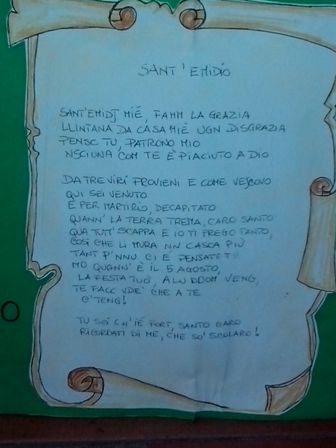 SANT'EMIDIO
SANT'EMIDJ MIÉ, FAMM LA GRAZIA
LLINTANA DA CASA MIÉ UGN DISGRAZIA
PENSC TU, PATRONO MIO
NSCIUNA COM TE È PIACIUTO A DIO
DA TREVIRI PROVIENI E COME VESCOVO
QUI SEI VENUTO
E PER MARTIRIO, DECAPITATO
QUANN' LA TERRA TREMA, CARO SANTO
QUA TUTT' SCAPPA E IO TI PREGO TANTO,
COSÌ CHE LI MURA NN CASCA PIÙ
TANT P'NNU CI È PENSATE TU
MO QUANN' È IL 5 AGOSTO,
LA FESTA TUO, A LU DDOM VENG,
TE FACC VDE' CHE A TE
C'TENG!
TU SEI CH'IÉ FORT, SANTO CARO
RICORDATI DI ME, CHE SO' SCOLARO!
O